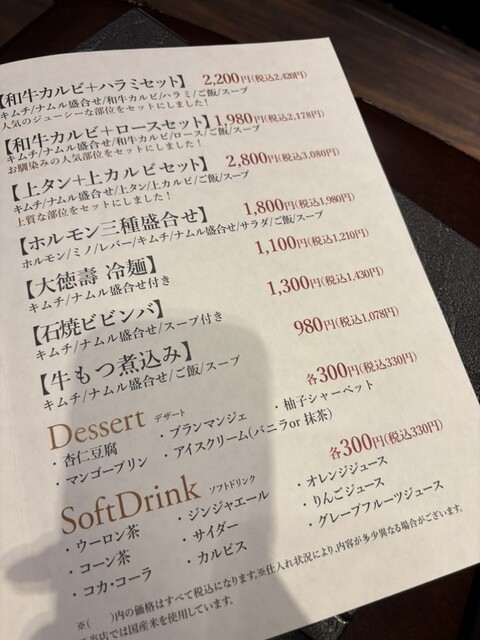 【和牛カルビ+ハラミセット】 2,200円(税込2,420円)
キムチ/ナムル盛合せ/和牛カルビ/ハラミ/ご飯/スープ
人気のジューシーな部位をセットにしました!
【和牛カルビ+ロースセット】 1,980円(税込2,178円)
キムチ/ナムル盛合せ/和牛カルビ/ロース/ご飯/スープ
お馴染みの人気部位をセットにしました!
【上タン+上カルビセット】 2,800円(税込3,080円)
キムチ/ナムル盛合せ/上タン/上カルビ/ご飯/スープ
上質な部位をセットにしました!
【ホルモン三種盛合せ】 1,800円(税込1,980円)
ホルモン/ミノ/レバー/キムチ/ナムル盛合せ/サラダ/ご飯/スープ
【大徳壽 冷麺】 1,100円(税込1,210円)
キムチ/ナムル盛合せ付き
【石焼ビビンバ】 1,300円(税込1,430円)
キムチ/ナムル盛合せ/スープ付き
【牛もつ煮込み】 980円(税込1,078円)
キムチ/ナムル盛合せ/ご飯/スープ
Dessert デザート 各300円(税込330円)
・杏仁豆腐 ・ブランマンジェ ・柚子シャーベット
・マンゴープリン ・アイスクリーム(バニラor 抹茶)
SoftDrink ソフトドリンク 各300円(税込330円)
・ウーロン茶 ・ジンジャエール ・オレンジジュース
・コーン茶 ・サイダー ・りんごジュース
・コカ・コーラ ・カルピス ・グレープフルーツジュース
※( )内の価格はすべて税込になります。※仕入れ状況により、内容が多少異なる場合がございます。
当店では国産米を使用しています。